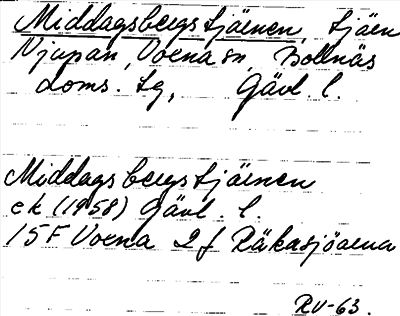 Middagsbergstjäenen, tjäen
Njupan, Voxna sn, Bollnäs
doms. tg, Gävl. l.
Middagsbergstjäenen
ek (1958) Gävl. l.
15F Voxna 2f Räkasjöarna
RV-63.